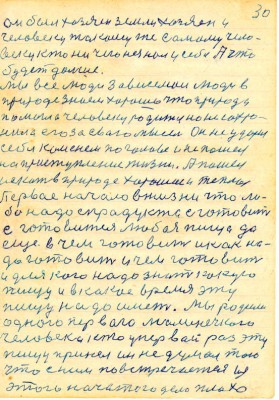 30
он был хозяин земли хозяен и
человеку такому же самому чело-
веку кто ничего не знал и себя А что
будет дальше.
Мы все люди зависимы люди в
природе знаем хорошо что природа
человеку родила но не сохра-
нила его за его мысли Он не ударил
себя камнем по голове и не пошел
на преступление жизни. А пошел
искать в природе хорошее и теплое
Первое начало в жизни что ли-
бо надо с продукта сготовить
сготовится любая пища да
еще в чем готовить и как на-
до готовить и чем готовить
и для кого надо знать какую
пищу и в какое время эту
пищу надо иметь. Мы родили
одного первого
человека кто у первой раз эту
пищу принял и не думал того
что с ним повстречается и я
этого начатого дело плохо